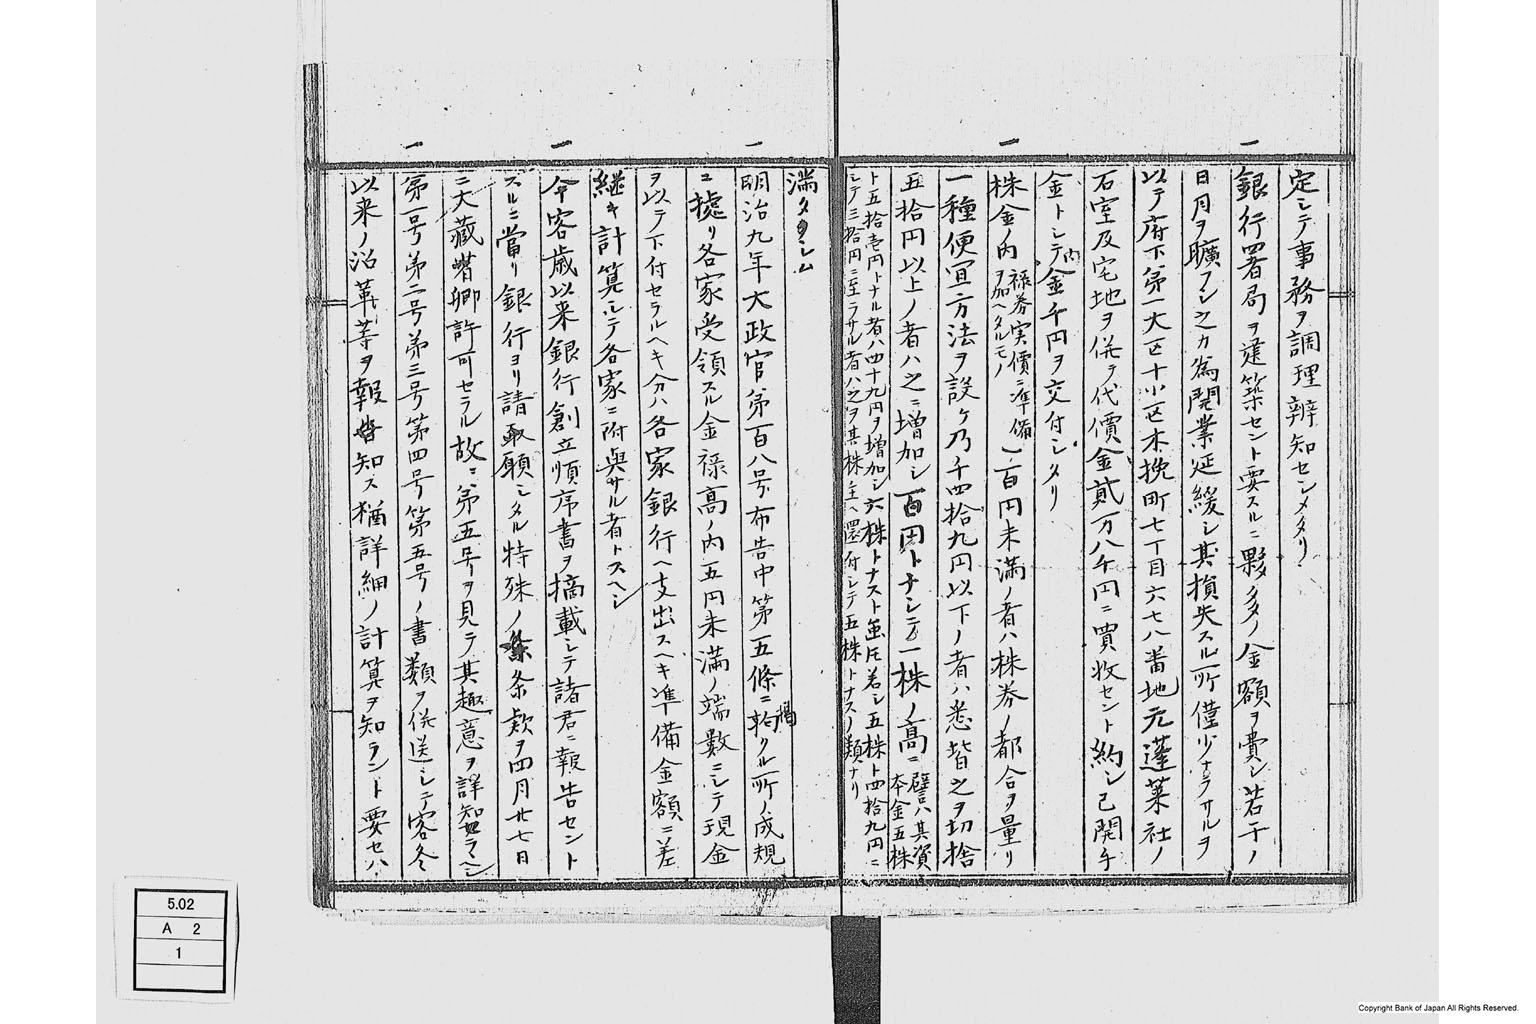 定シテ事務ヲ調理辨知センメタリ
一
銀行署局ヲ建築セント要スルニ夥多ノ金額ヲ費シ若干ノ
日月ヲ曠フシ之カ為開業延緩シ其損失スル所僅少ナラサルヲ
以テ府下第一大区十小区木挽町七丁目六七八番地元蓬萊社ノ
石室及宅地ヲ併テ代價金貳万八千円ニ買收セント約シ已開手
金トシテ内金千円ヲ交付シタリ
一
株金ノ内禄券実價ニ準備ヲ加ヘタルモノ百円未満ノ者ハ株券ノ都合ヲ量リ
一種便宜方法ヲ設ケ乃チ四拾九円以下ノ者ハ悉皆之ヲ切捨
五拾円以上ノ者ハ之ニ增加シ百円トナシテ一株ノ高ニ譬ハ其資本金五株
ト五拾壱円トナル者ハ四十九円ヲ增加シ六株トナスト虽圧若シ五株ト四拾九円ニ
シテ三拾円ニ至ラサル者ハ之ヲ其株主ヘ還付シテ五株トナスノ類ナリ
満タシム
一
明治九年大政官第百八号布告中第五條ニ揭クル所ノ成規
ニ據リ各家受領スル金禄高ノ内五円未満ノ端數ニシテ現金
ヲ以テ下付セラルヘキ分ハ各家銀行ヘ支出スヘキ準備金額ニ差
継キ計算シテ各家ニ附與サル者トスヘシ
一
今客歳以来銀行創立順序書ヲ摘載シテ諸君ニ報告セント
スルニ當リ銀行ヨリ請願シタル特殊ノ条款ヲ四月廿七日
ニ大蔵卿許可セラル故ニ第五号ヲ見テ其趣意ヲ詳知ラヘシ
一
第一号第二号第三号第四号第五号ノ書類ヲ併送シテ客冬
以来ノ沿革等ヲ報知ス猶詳細ノ計算ヲ知ラント要セハ
5.02
A 2
1
Copyright Bank of Japan All Rights Reserved.